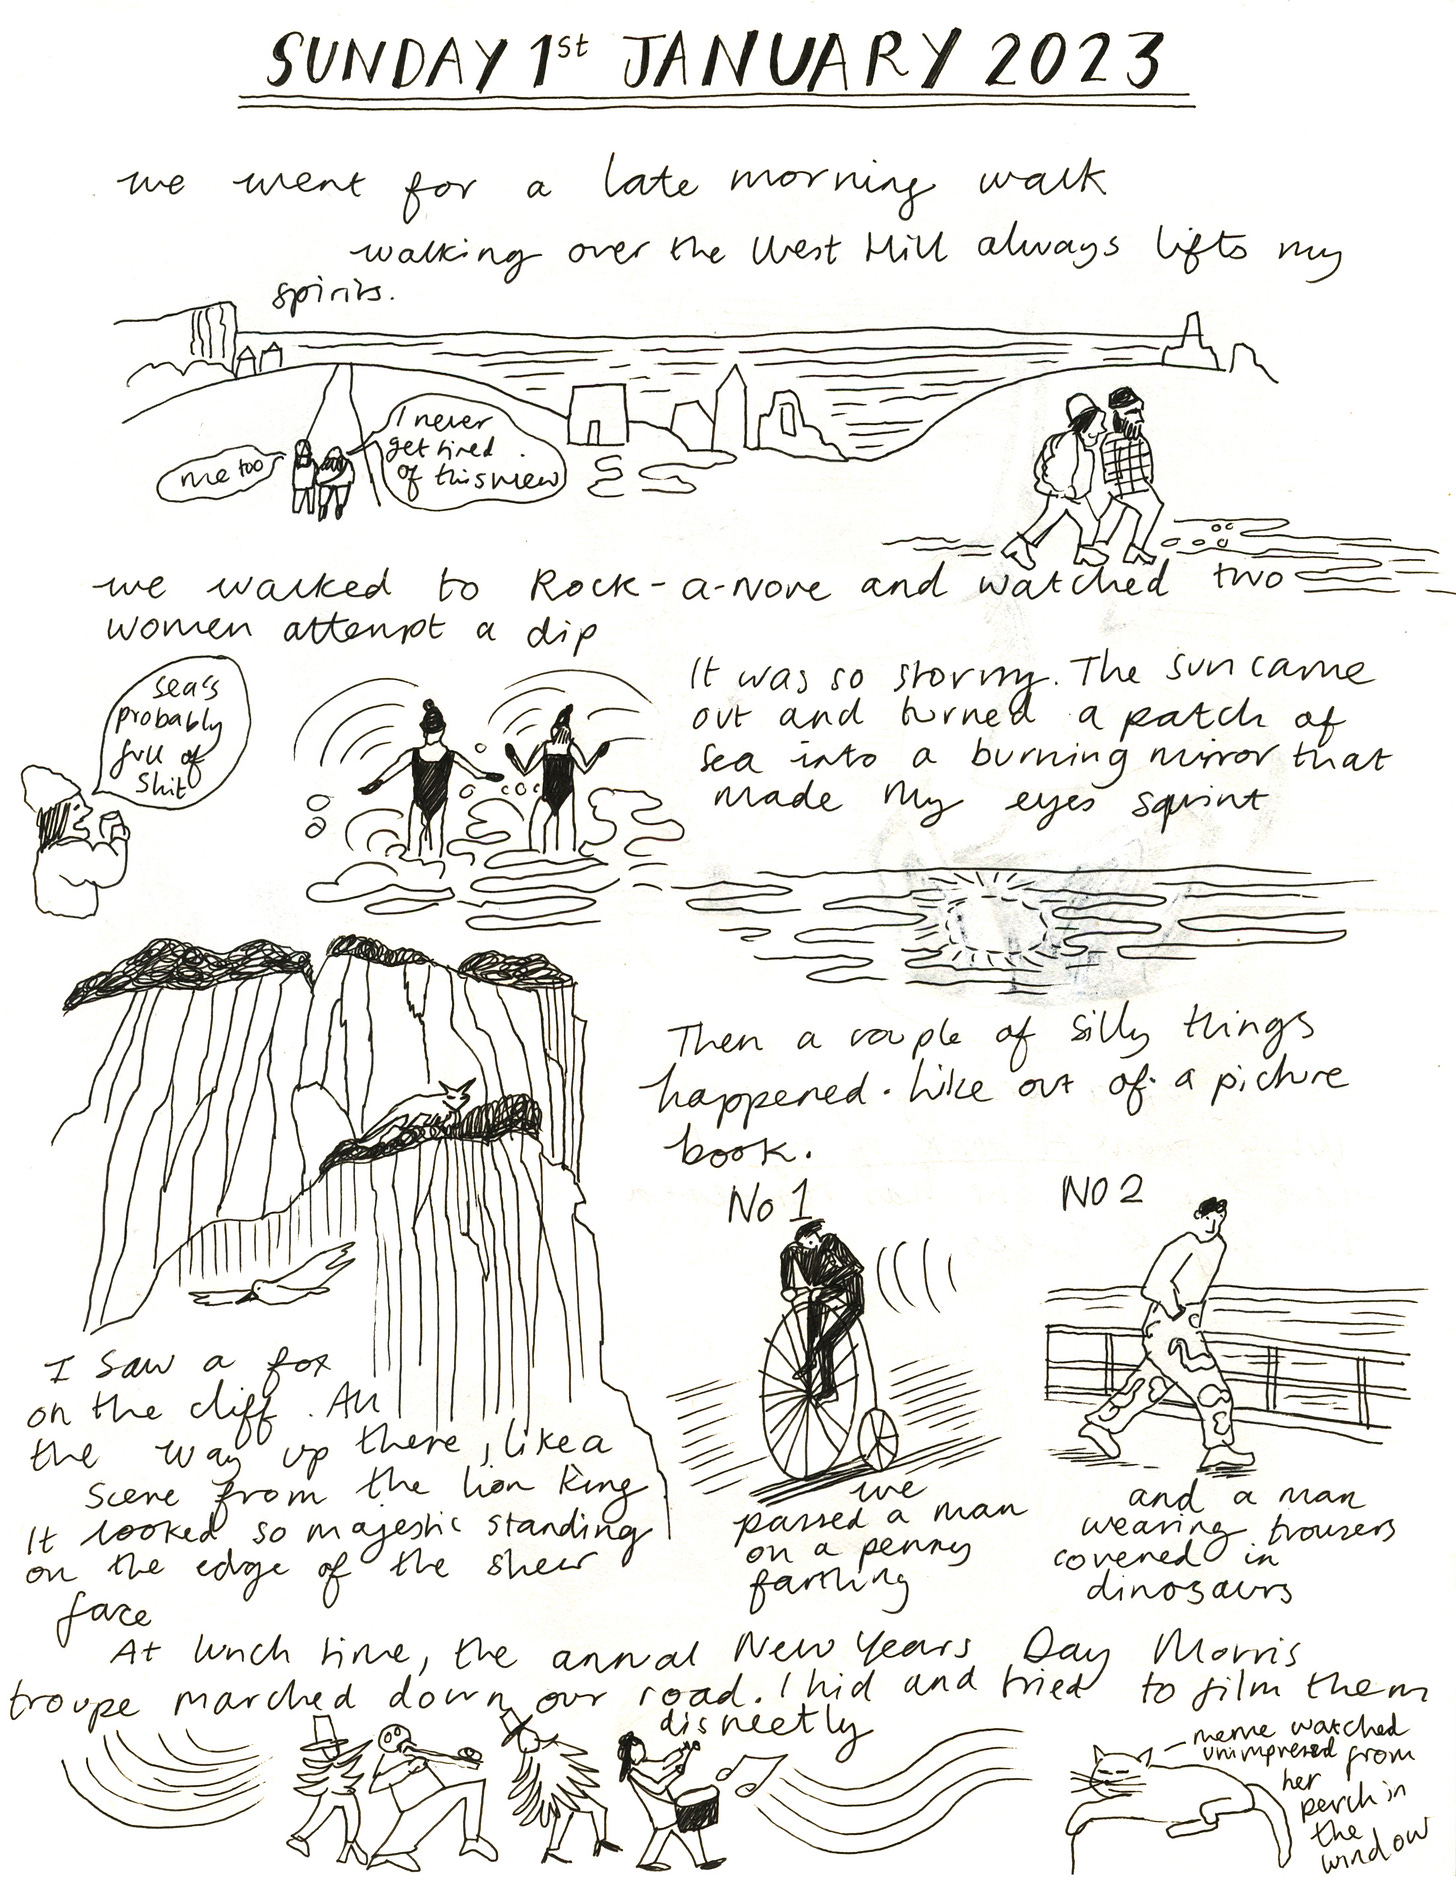 SUNDAY 1st JANUARY 2023
we went for a late morning walk
walking over the West Hill always lifts my
spirits.
I never
get tired
of this view
me too
we walked to Rock-a-Nore and watched two
women attempt a dip
sea's
probably
full of
shit
It was so stormy. The sun came
out and turned a patch of
sea into a burning mirror that
made my eyes squint
Then a couple of silly things
happened. Like out of a picture
book.
No 1
NO 2
I saw a fox
on the cliff. All
the way up there, like a
scene from the lion king
It looked so majestic standing
on the edge of the sheer
face
we
passed a man
on a penny
farthing
and a man
wearing trousers
covered in
dinosaurs
At lunch time, the annual New Years Day Morris
troupe marched down our road. I hid and tried to film them
discreetly
meme watched
unimpressed from
her
perch in
the
window